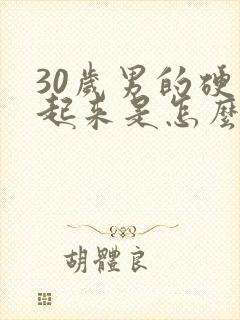 30歲男的硬
起来是怎麼
胡體良